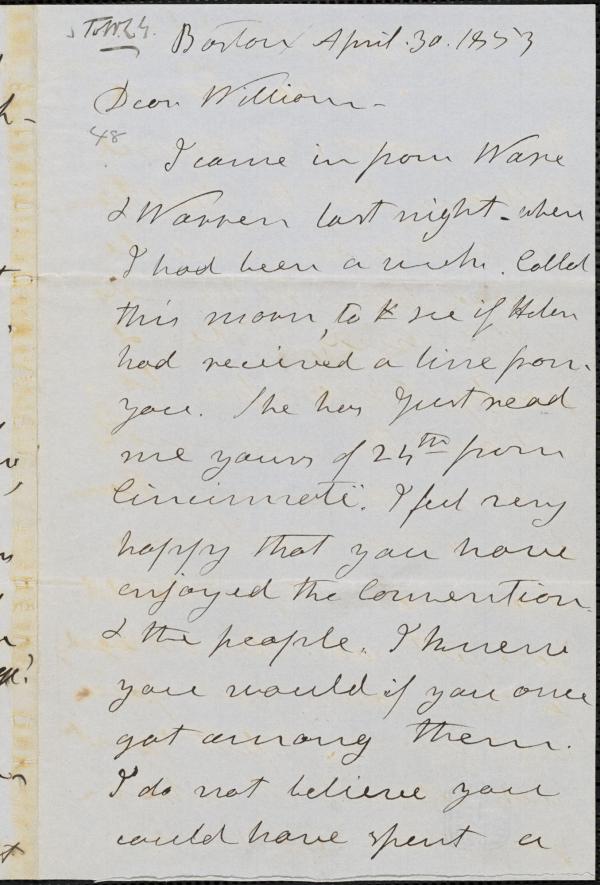 To W.L.G.
Boston April. 30. 1853
Dear William -
48
I came in from Ware
& Warren last night - where
I had been a week. Called
this morn, to see if Helen
had received a line from
you. She has just read
me yours of 24th from
Cincinnati. I feel very
happy that you have
enjoyed the Convention
& the people. I knew
you would if you once
got among them.
I do not believe you
could have spent a